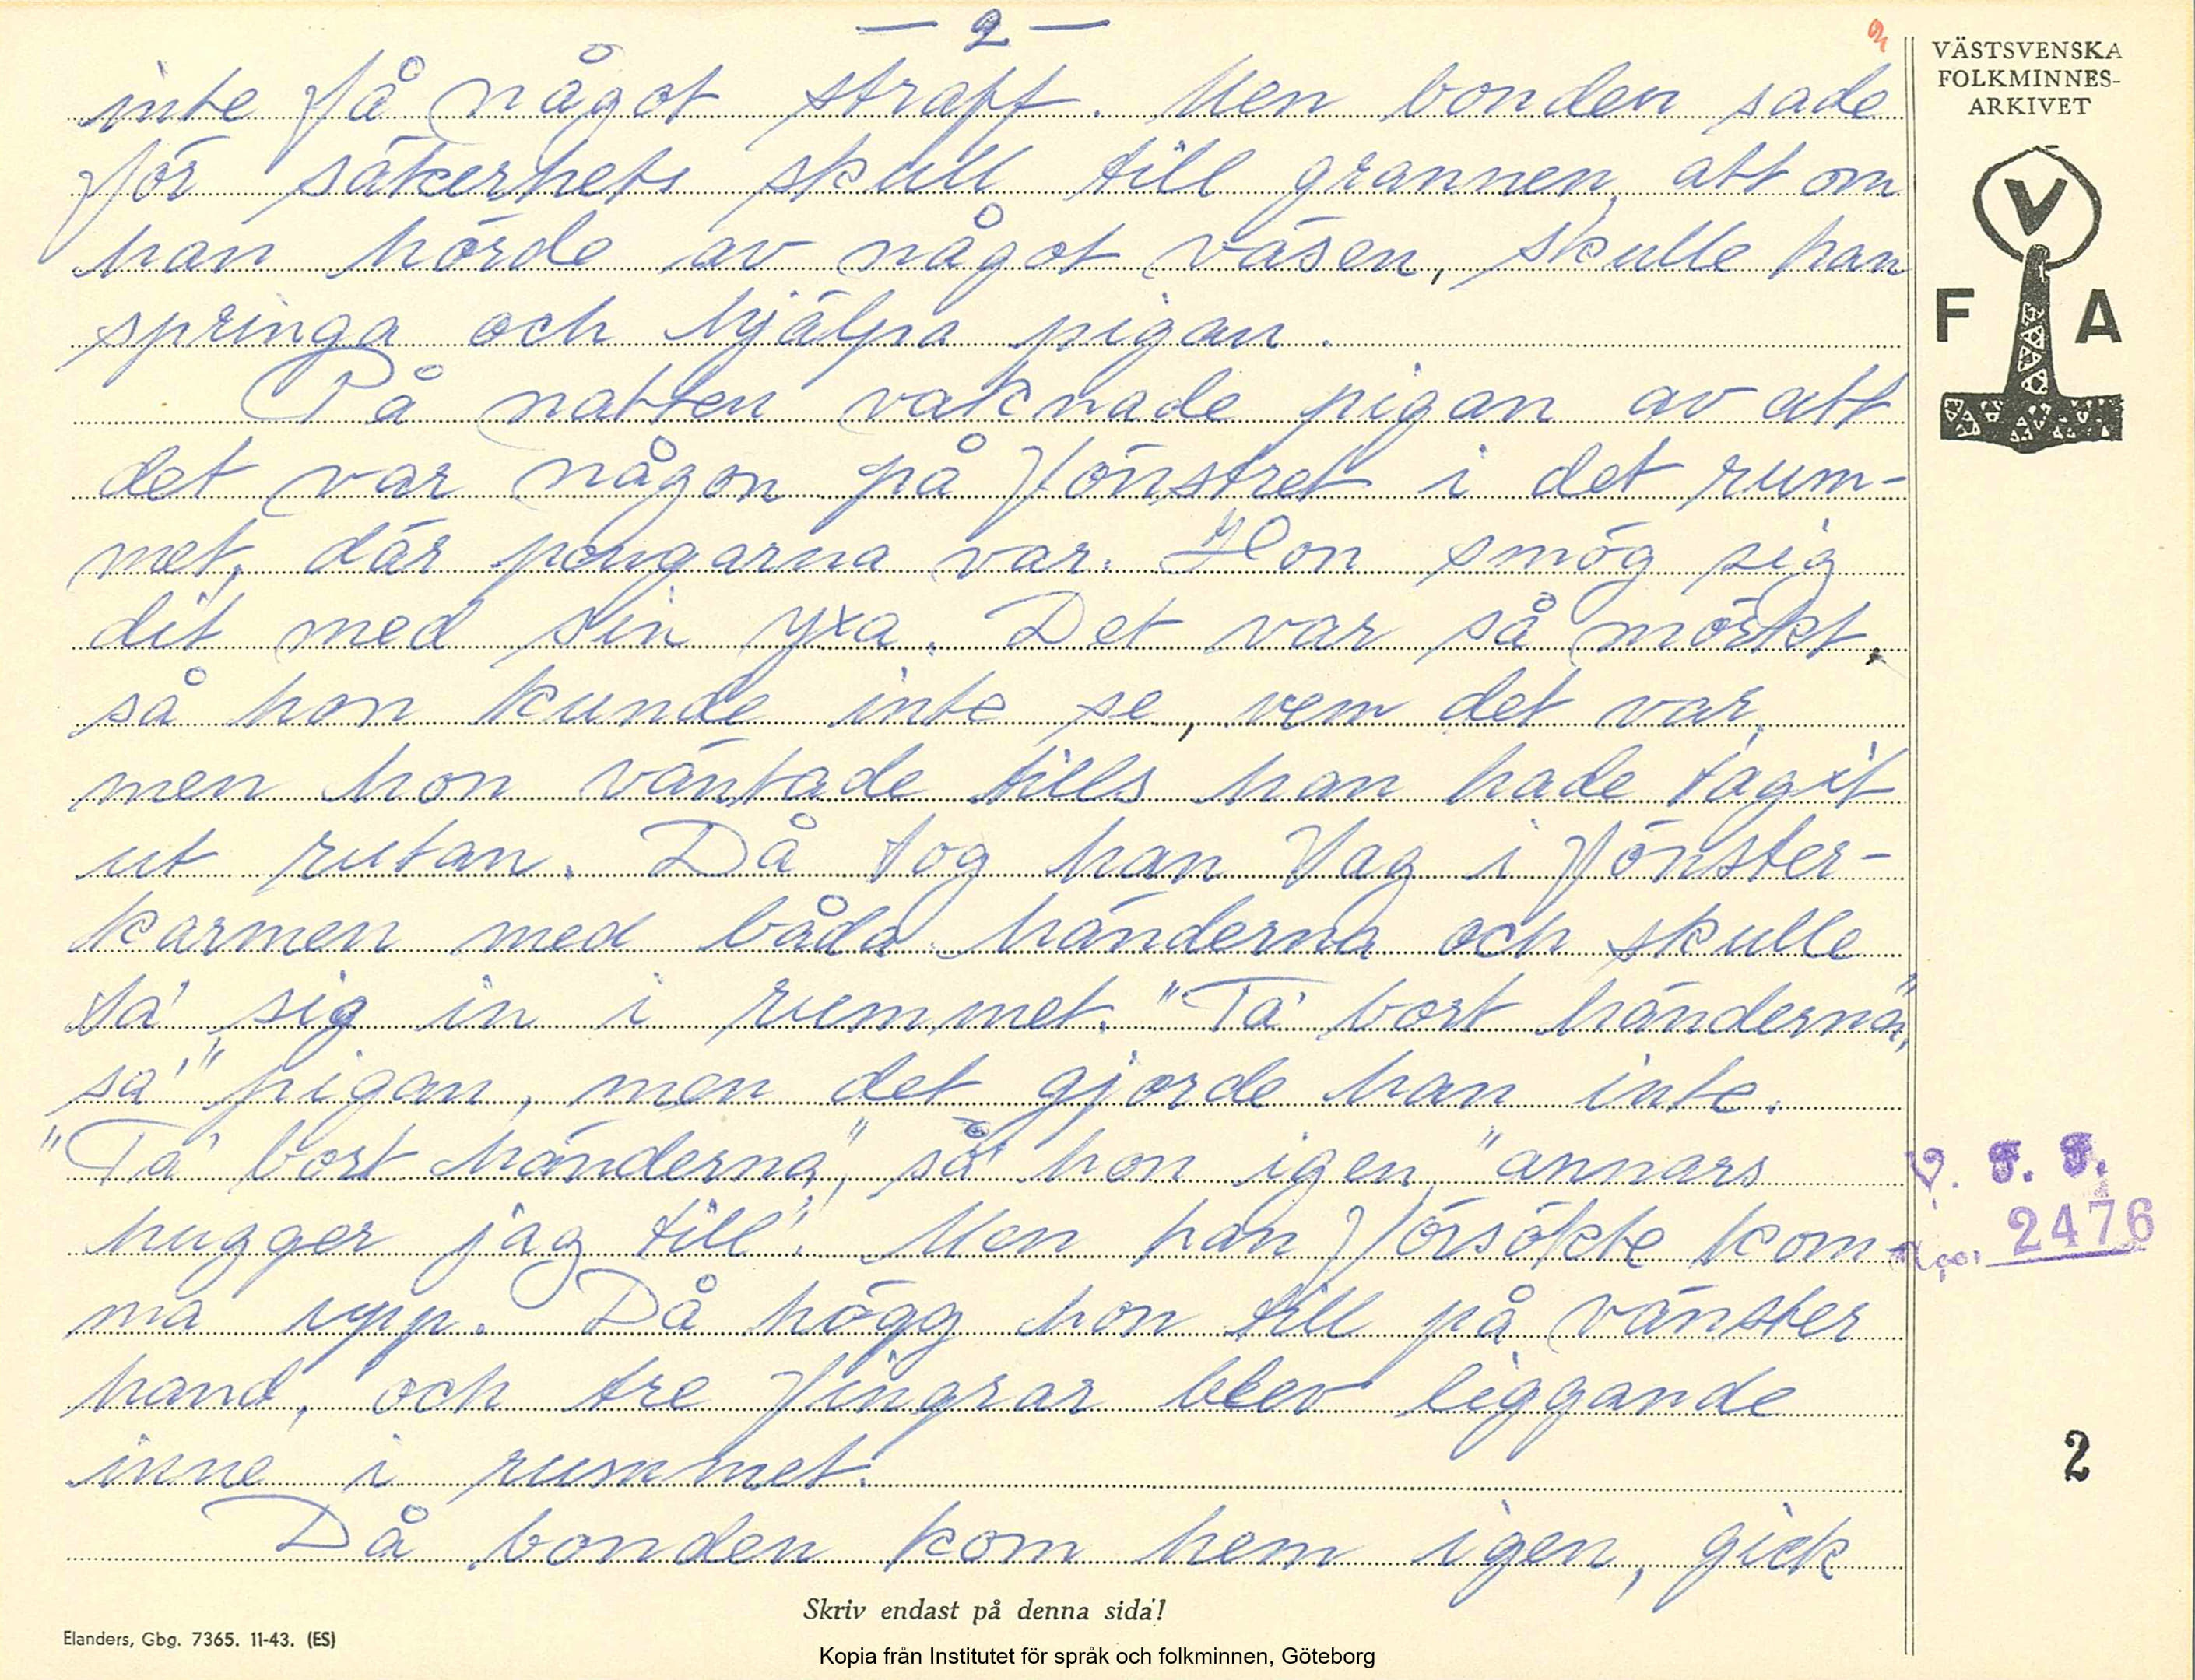 - 2 -
2
inte få något straff. Men bonden sade
för säkerhets skull till grannen, att om
han hörde av något väsen, skulle han
springa och hjälpa pigan.
På natten vaknade pigan av att
det var någon på fönstret i det rum-
met, där pengarna var. Hon smög sig
dit med sin yxa. Det var så mörkt,
så hon kunde inte se, vem det var,
men hon väntade tills han hade tagit
ut rutan. Då tog han tag i fönster-
karmen med båda händerna och skulle
ta' sig in i rummet. "Ta' bort händerna",
sa' pigan, men det gjorde han inte.
"Ta' bort händerna", sa' hon igen, "annars
hugger jag till". Men han försökte kom-
ma upp. Då högg hon till på vänster
hand, och tre fingrar blev liggande
inne i rummet.
Då bonden kom hem igen, gick
VÄSTSVENSKA
FOLKMINNES-
ARKIVET
V
F A
V. F. F.
2476
2
Skriv endast på denna sida!
Elanders, Gbg. 7365. 11-43. (ES)
Kopia från Institutet för språk och folkminnen, Göteborg